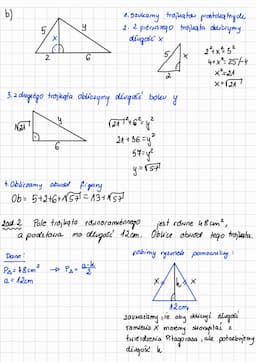 b)
1. szukamy trójkątów prostokątnych
2. z pierwszego trójkąta obliczymy
długość x
5
y
x
2
6
5
x
2
2²+x²=5²
4+x²=25/-4
x²=21
x=√21
3. z drugiego trójkąta obliczymy długość boku y
√21
y
6
√21²+6²=y²
21+36=y²
57=y²
y=√57
4. Obliczamy obwód figury
Ob=5+2+6+√57=13+√57
Zad 2. Pole trójkąta równoramiennego jest równe 48cm²,
a podstawa ma długość 12cm. Oblicz obwód tego trójkąta.
Dane:
P△=48cm² → P△=a·h/2
a=12cm
robimy rysunek pomocniczy:
x
h
x
12cm
zauważamy, że aby obliczyć długość
ramienia x możemy skorzystać z
twierdzenia Pitagorasa, ale potrzebujemy
długość h